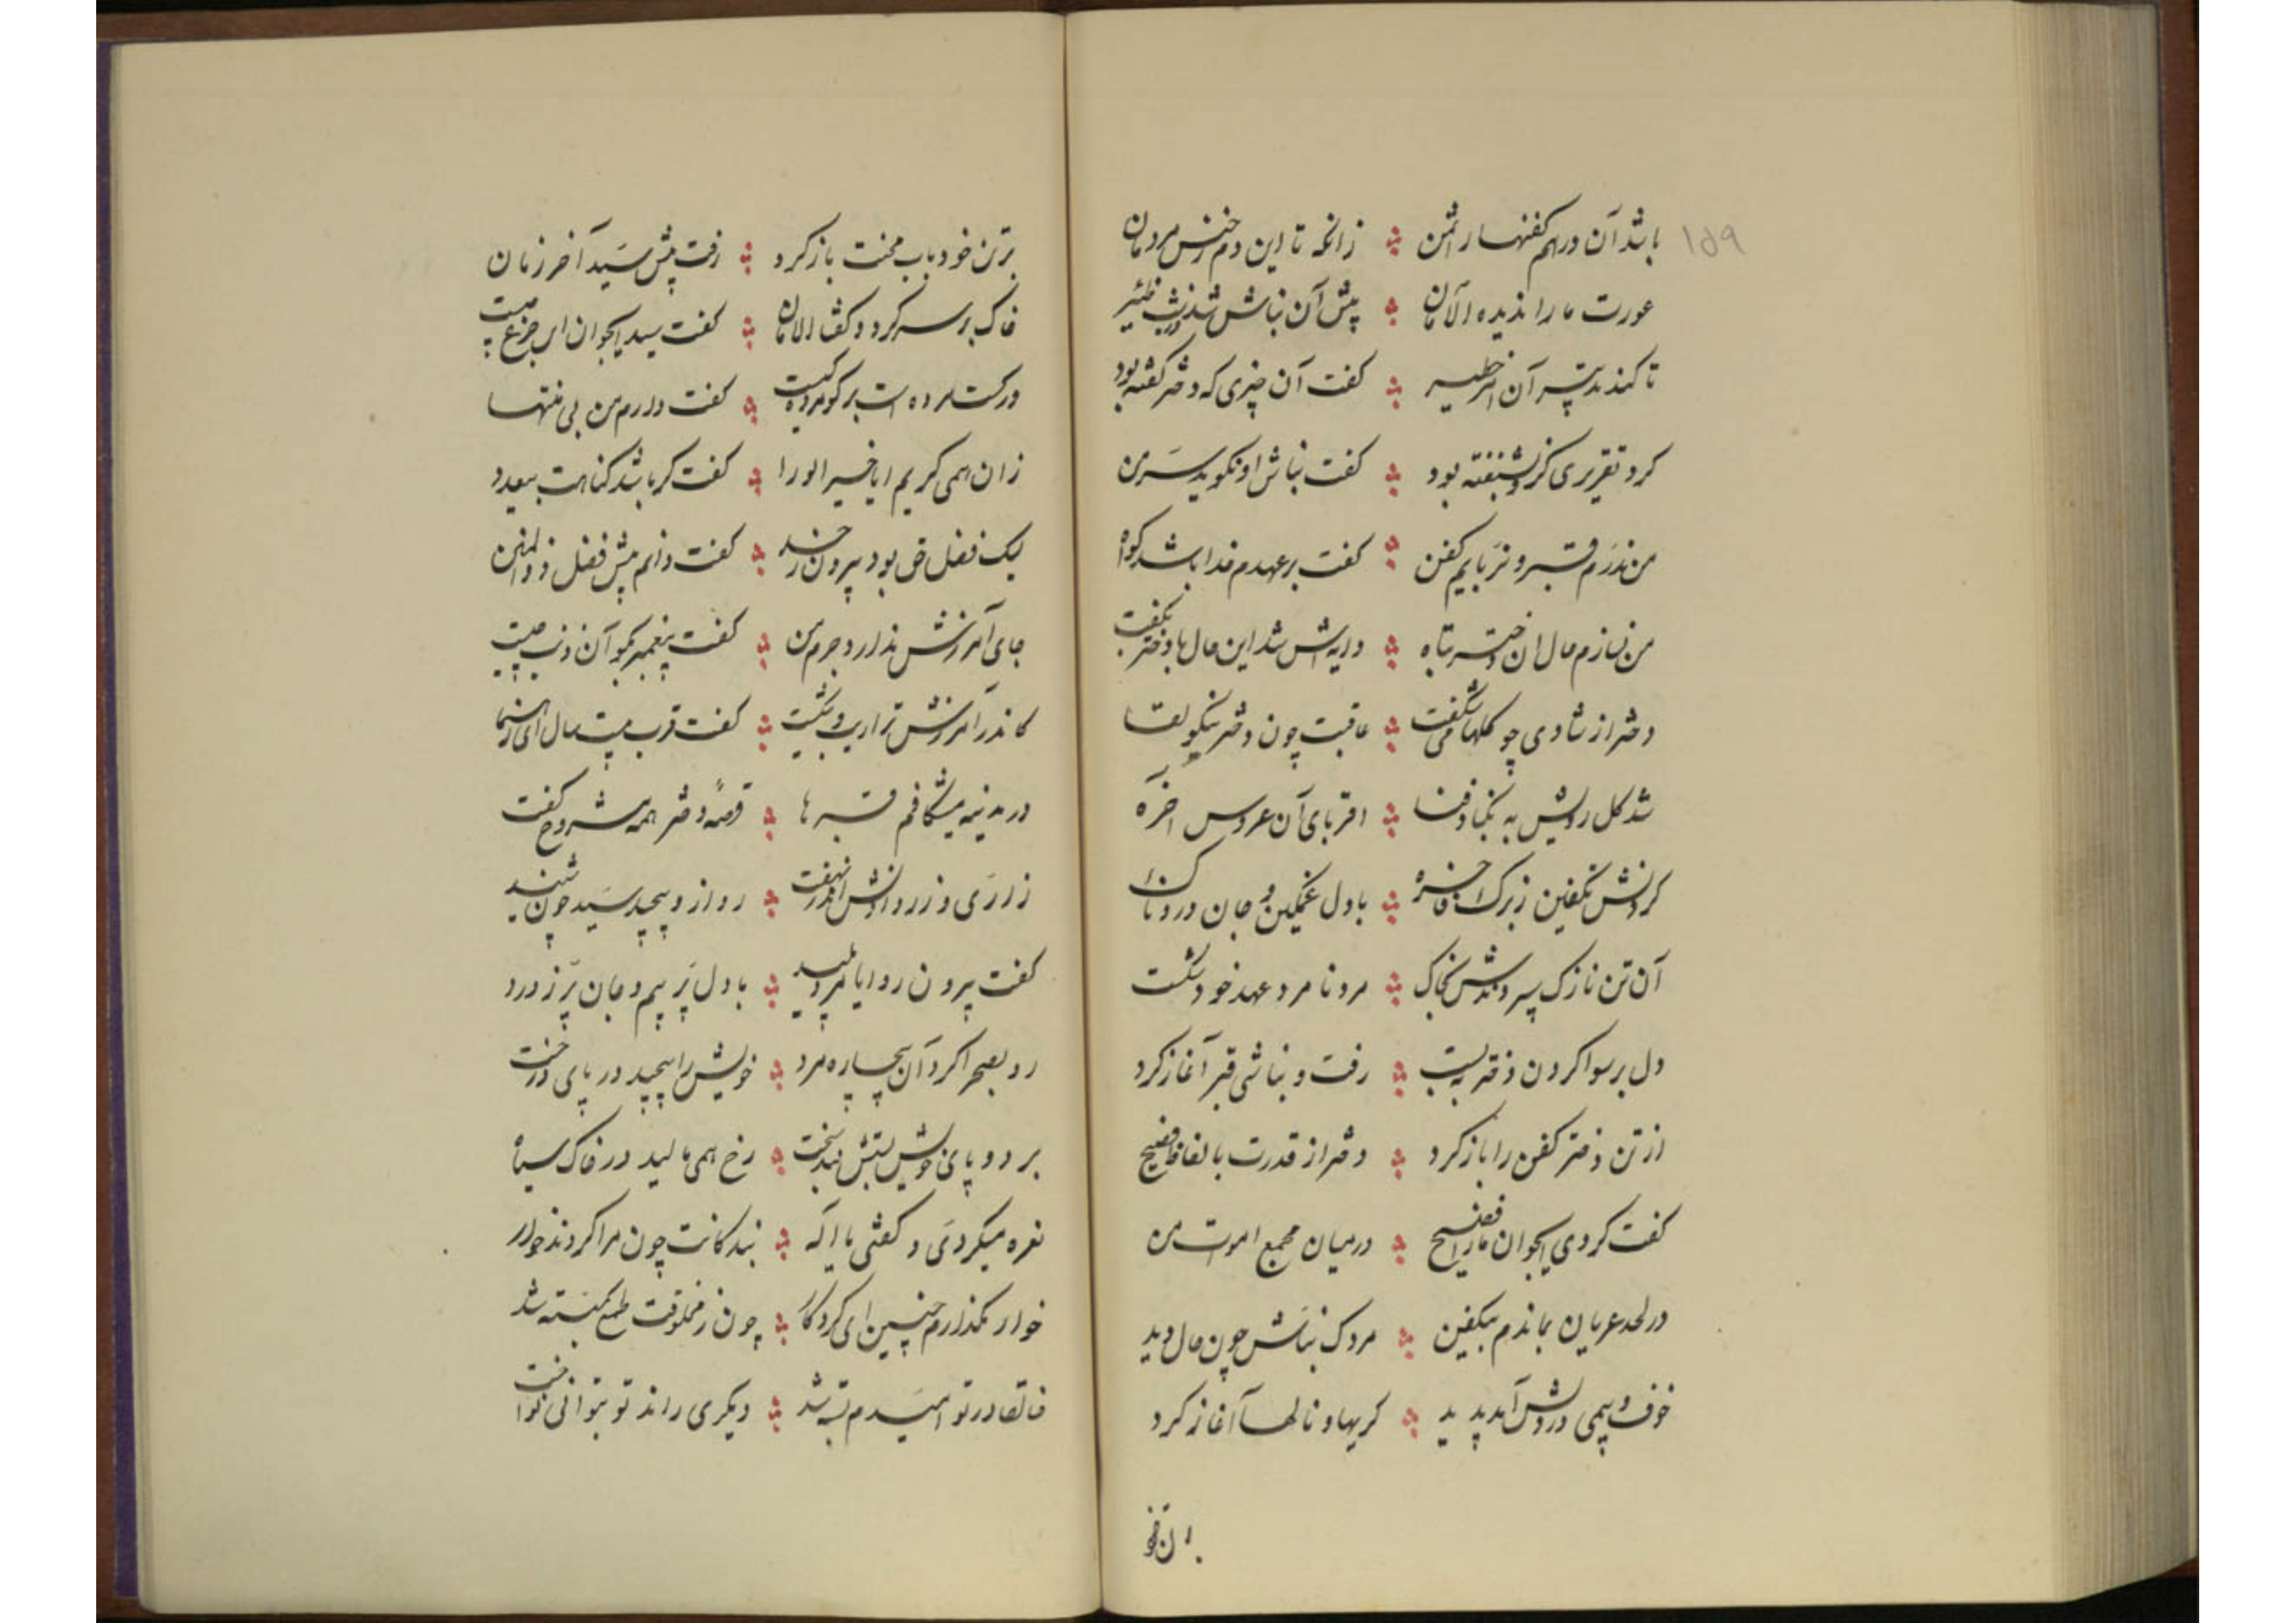 ۱۵۹
باشد آن درهم کفنها را ثمن ؞ زانکه تا این دم ز جنس مردمان
عورت ما را ندیده الامان ؞ پیش آن نباش شد
تا کند تدبیر آن امر خطیر ؞ گفت آن چیزی که دختر گفته بود
کرد تقریری کزو بشنفته بود ؞ گفت نباش او نگوید سر من
من ندرم قبر و نربایم کفن ؞ گفت بر عهدم خدا باشد گواه
من نسازم حال آن دختر تباه ؞ دایه‌اش شد این حال با دختر بگفت
دختر از شادی چو گلها می شگفت ؞ عاقبت چون دختر نیکو لقا
شد گل رویش به یغمای فنا ؞ اقربای آن عروس آخره
کردنش تکفین ز برگ فاخره ؞ با دل غمگین و جان دردناک
آن تن نازک سپردندش بخاک ؞ مرد نامرد عهد خود شکست
دل برسوا کردن دختر ببست ؞ رفت و نباشی قبر آغاز کرد
از تن دختر کفن را باز کرد ؞ دختر از قدرت بالفاظ فصیح
گفت کردی ایجوان ما را فضیح ؞ در میان مجمع اموات من
در لحد عریان بماندم بیکفن ؞ مردک نباش چون حال دید
خوف و بیمی در دلش آمد پدید ؞ گریها و نالها آغاز کرد
بر تن خود
بر تن خود باب محنت باز کرد ؞ رفت پیش سید آخر زمان
خاک بر سر کرد و گفتا الامان ؞ گفت سید ایجوان این جزع چیست
در کت مرده است برگو مرده کیست ؞ گفت دارم من بی منتها
زان همی گریم ایا خیر الورا ؞ گفت گر باشد گناهت بیعدد
لیک فضل حق بود بیرون ز حد ؞ گفت دانم پیش فضل ذوالمنن
جای آمرزش ندارد جرم من ؞ گفت پیغمبر بگو آن ذنب چیست
کاندر آمرزش ترا ریب و شکیست ؞ گفت قرب بیست سال ای رهنما
در مدینه میشکافم قبرها ؞ قصهٔ دختر همه مشروح گفت
زاری و زردانش اندر نهفت ؞ رو ازو پیچید سید چون شنید
گفت بیرون رو ایا مرد پلید ؞ با دل پر بیم و جان پر ز درد
رو بصحرا کرد آن بیچاره مرد ؞ خویش را پیچید در پای درخت
بر دو پای خویش بستش بند سخت ؞ رخ همی مالید در خاک سیاه
نعره میکردی و گفتی یا اله ؞ بندگانت چون مرا کردند خوار
خوار مگذارم چنین ای کردگار ؞ چون ز مخلوقت طمع بگسسته شد
خالقا در تو امیدم بسته شد ؞ دیگری راند تو بتوانی نواخت